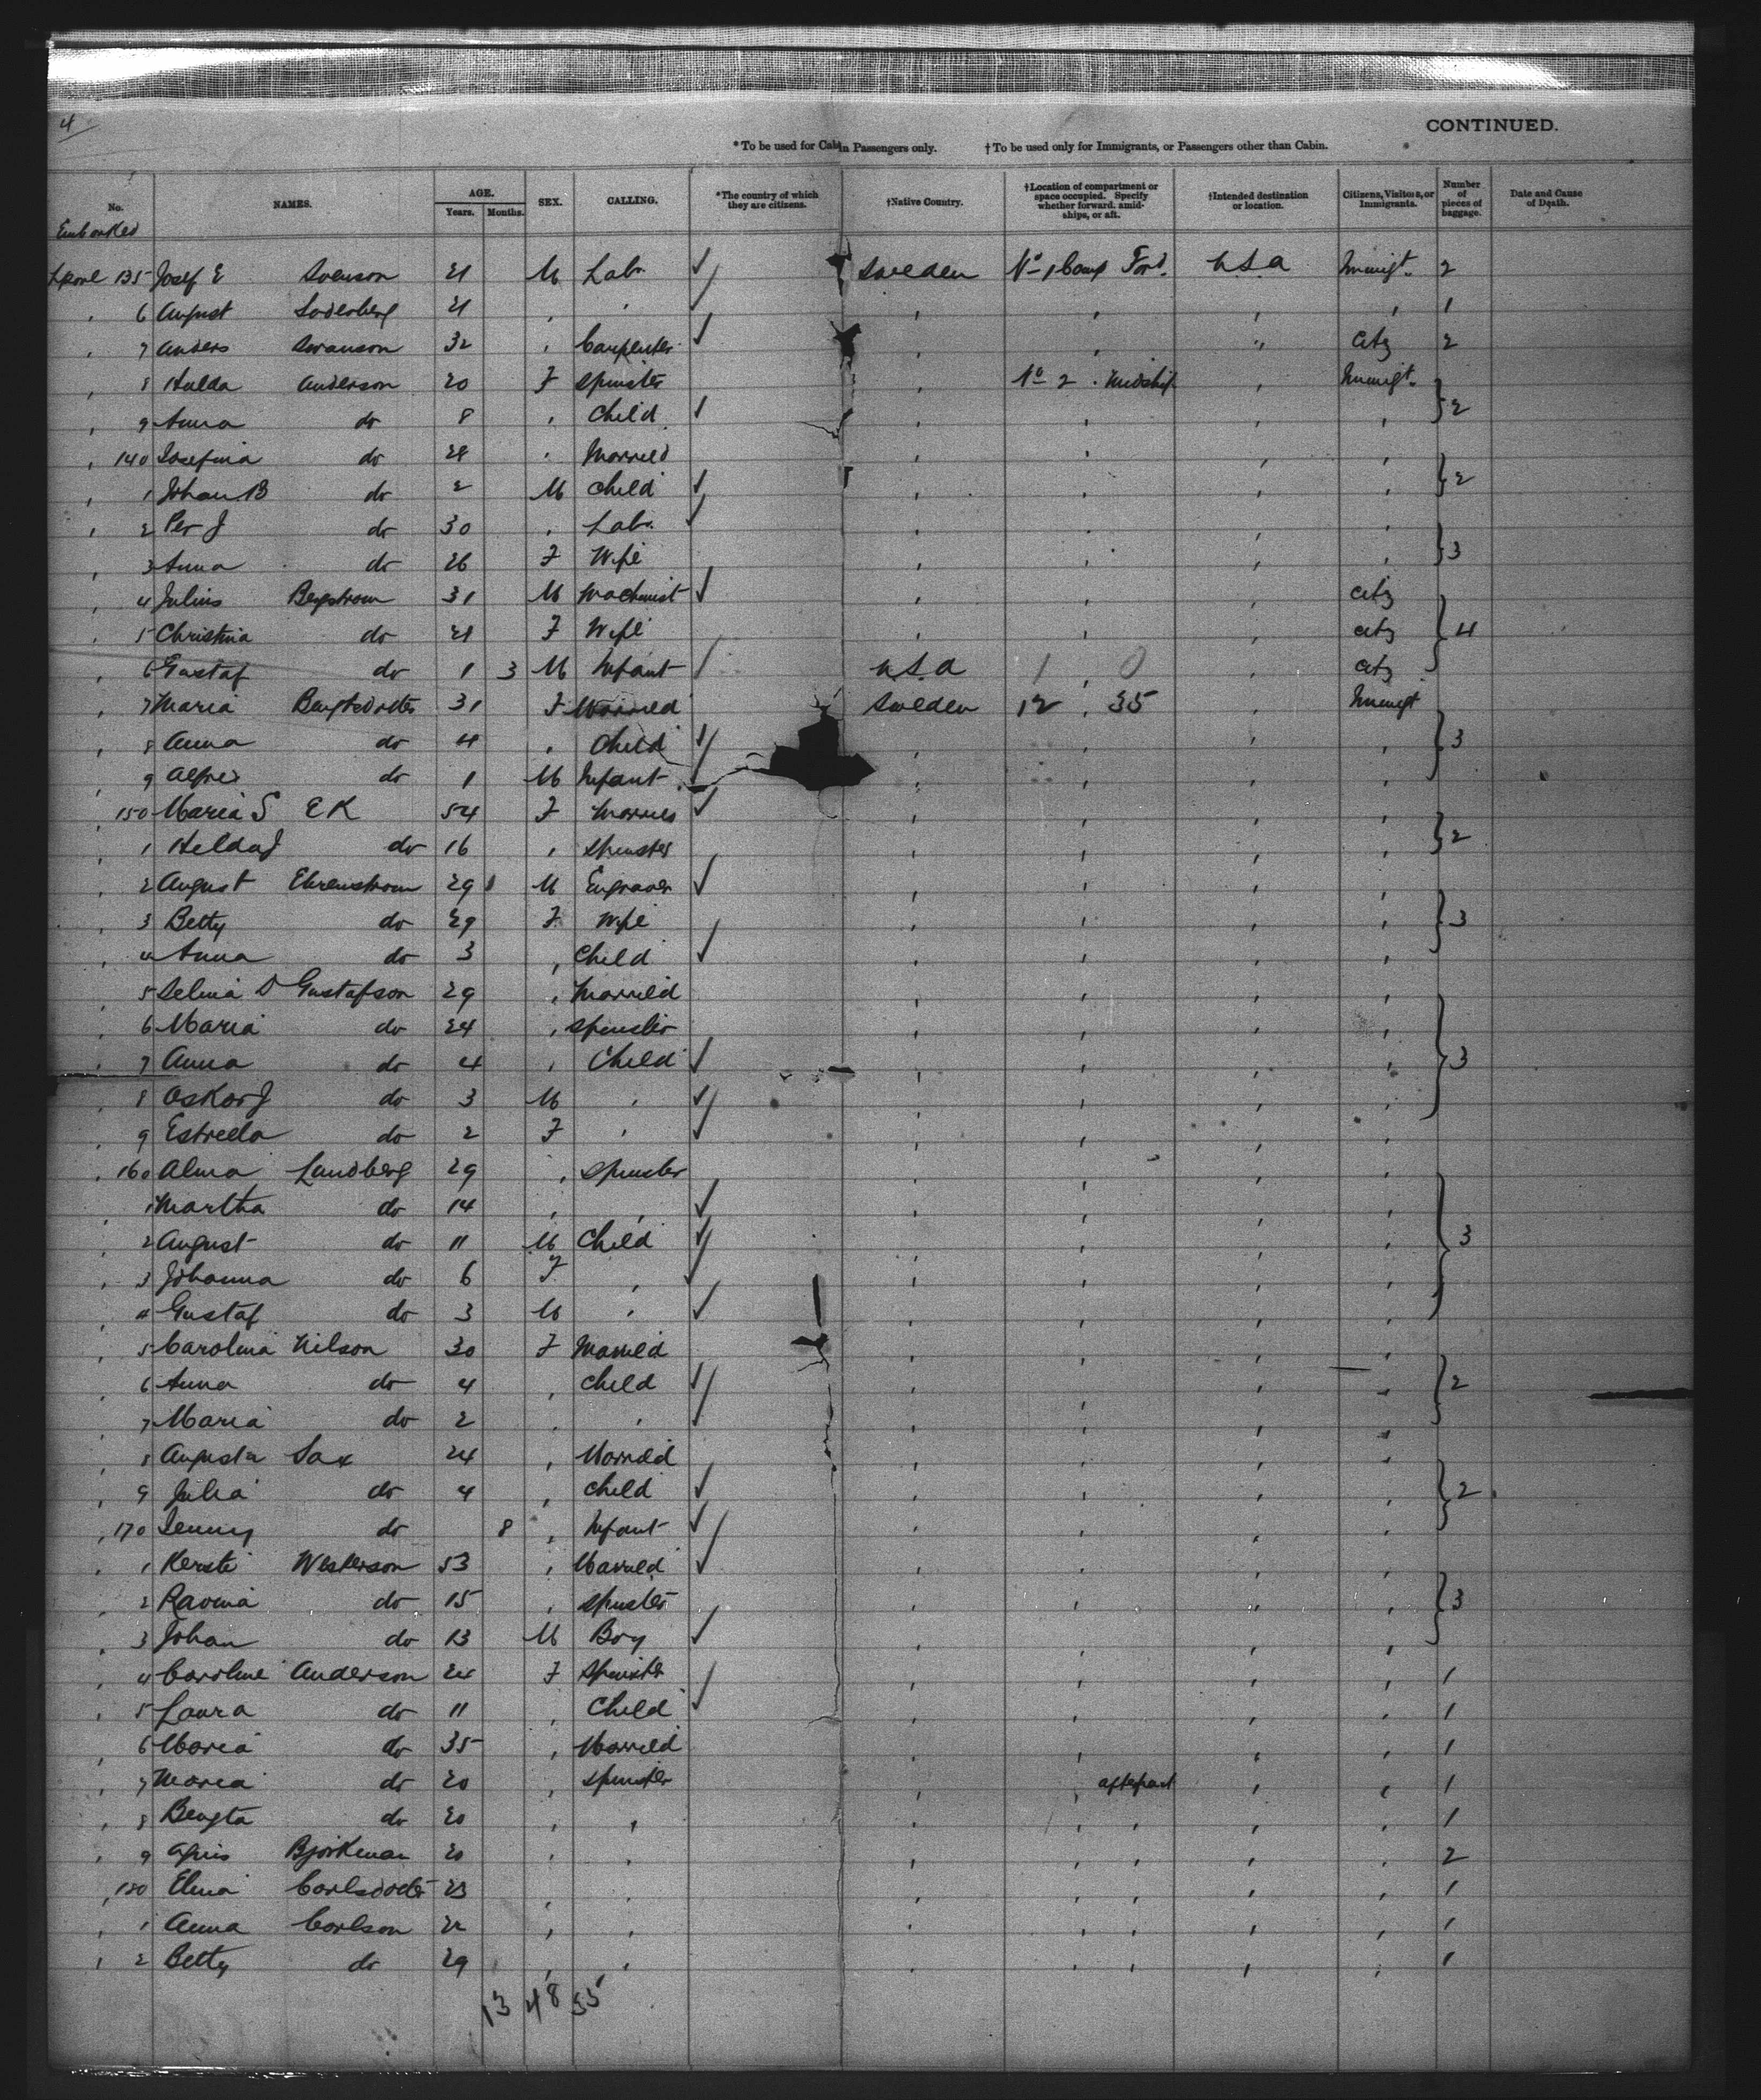 4
CONTINUED.
* To be used for Cabin Passengers only. † To be used only for Immigrants, or Passengers other than Cabin.
No. NAMES. AGE. Years. Months. SEX. CALLING. *The country of which they are citizens. †Native Country. †Location of compartment or space occupied. Specify whether forward, amidships, or aft. †Intended destination or location. Citizens, Visitors, or Immigrants. Number of pieces of baggage. Date and Cause of Death.
Embarked
Lpool 135 Josef E Svenson 21 M Labr ✓ Sweden No 1 Comp Ford. U.S.A Immigt. 2
" 6 August Soderberg 21 " " " " " " 1
" 7 Anders Swanson 32 " Carpenter ✓ " " " Citz 2
" 8 Hulda Anderson 20 F Spinster " No 2 . Midship " Immigt. } 2
" 9 Anna do 8 " Child ✓ " " " "
" 140 Josefina do 28 " Married " " " " } 2
" 1 Johan B do 2 M Child ✓ " " " "
" 2 Per J do 30 " Labr. ✓ " " " " } 3
" 3 Anna do 26 F Wife " " " "
" 4 Julius Bergstrom 31 M Machinist ✓ " " " Citz } 4
" 5 Christina do 21 F Wife " " " Citz
" 6 Gustaf do 1 3 M Infant U.S.A 1 0 " Citz
" 7 Maria Bengtsdotter 31 F Married Sweden 12 35 " Immigt } 3
" 8 Anna do 4 " Child ✓ " " " "
" 9 Alfred do 1 M Infant " " " "
" 150 Maria S EK 54 F Married ✓ " " " " } 2
" 1 Hilda J do 16 " Spinster " " " "
" 2 August Ehrenstrom 29 M Engraver ✓ " " " " } 3
" 3 Betty do 29 F Wife " " " "
" 4 Anna do 3 " Child ✓ " " " "
" 5 Selma D Gustafson 29 " Married " " " " } 3
" 6 Maria do 24 " Spinster " " " "
" 7 Anna do 4 " Child ✓ " " " "
" 8 Oskar J do 3 M " ✓ " " " "
" 9 Estrella do 2 F " ✓ " " " "
" 160 Alma Landberg 29 " Spinster " " " " } 3
" 1 Martha do 14 " " ✓ " " " "
" 2 August do 11 M Child ✓ " " " "
" 3 Johanna do 6 F " ✓ " " " "
" 4 Gustaf do 3 M " ✓ " " " "
" 5 Carolina Nilson 30 F Married " " " " } 2
" 6 Anna do 4 " Child ✓ " " " "
" 7 Maria do 2 " " ✓ " " " "
" 8 Augusta Sax 24 " Married " " " " } 2
" 9 Julia do 4 " Child ✓ " " " "
" 170 Jenny do 8 " Infant ✓ " " " "
" 1 Kersti Westerson 53 " Married ✓ " " " " } 3
" 2 do 15 " Spinster " " " "
" 3 Johan do 13 M Boy ✓ " " " "
" 4 Caroline Anderson 24 F Spinster " " " " 1
" 5 Laura do 11 " Child ✓ " " " " 1
" 6 Maria do 35 " Married " " " " 1
" 7 Maria do 20 " Spinster " " aftpart " " 1
" 8 Bengta do 20 " " " " " " " 1
" 9 Bjorkman 20 " " " " " " " 2
" 180 Elina Carlsdotter 23 " " " " " " " 1
" 1 Anna Carlson 22 " " " " " " " 1
" 2 Betty do 29 " " " " " " " 1
13 48 35